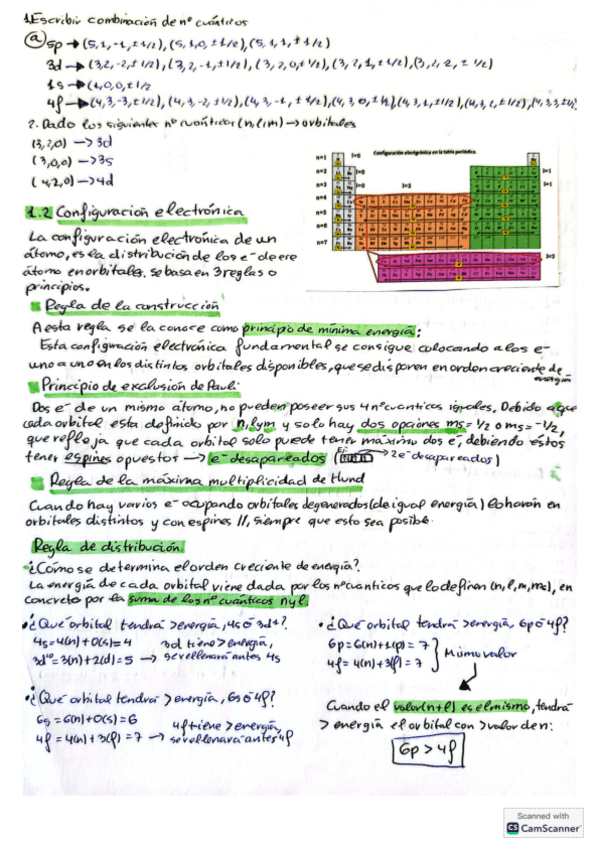 1. Escribir combinación de nº cuánticos
ⓐ 5p → (5,1,-1,±1/2), (5,1,0,±1/2), (5,1,1,±1/2)
3d → (3,2,-2,±1/2), (3,2,-1,±1/2), (3,2,0,±1/2), (3,2,1,±1/2), (3,2,2,±1/2)
1s → (1,0,0,±1/2
4f → (4,3,-3,±1/2), (4,3,-2,±1/2), (4,3,-1,±1/2), (4,3,0,±1/2), (4,3,1,±1/2), (4,3,2,±1/2), (4,3,3,±1/2)
2. Dado los siguientes nº cuánticos (n,l,m) → orbitales
(3,2,0) → 3d
(3,0,0) → 3s
(4,2,0) → 4d
Configuración electrónica en la tabla periódica.
n=1
n=2
n=3
n=4
n=5
n=6
n=7
l=0
l=0
l=2
l=1
l=1
l=3
1.2 Configuración electrónica
La configuración electrónica de un
átomo, es la distribución de los e- de ese
átomo en orbitales. se basa en 3 reglas o
principios.
Regla de la construcción
A esta regla se la conoce como principio de mínima energía:
Esta configuración electrónica fundamental se consigue colocando a los e-
uno a uno en los distintos orbitales disponibles, que se disponen en orden creciente de
energía
Principio de exclusión de Pauli:
Dos e- de un mismo átomo, no pueden poseer sus 4 nº cuánticos iguales. Debido a que
cada orbital esta definido por n, l y m y solo hay dos opciones ms = 1/2 o ms = -1/2,
que refleja que cada orbital solo puede tener máximo dos e-, debiendo éstos
tener espines opuestos → e- desapareados ( → 2e- desapareados)
Regla de la máxima multiplicidad de Hund
Cuando hay varios e- ocupando orbitales degenerados (de igual energía) lo harán en
orbitales distintos y con espines //, siempre que esto sea posible.
Regla de distribución
¿Cómo se determina el orden creciente de energía?.
La energía de cada orbital viene dada por los nº cuánticos que lo definen (n, l, m, ms), en
concreto por la suma de los nº cuánticos n y l.
• ¿Qué orbital tendrá > energía, 4s o 3d?
4s = 4(n) + 0(s) = 4 3d tiene > energía,
3d = 3(n) + 2(d) = 5 → se rellenará antes 4s
• ¿Qué orbital tendrá > energía, 6s o 4f?
6s = 6(n) + 0(s) = 6 4f tiene > energía,
4f = 4(n) + 3(f) = 7 → se rellenará antes 4f
• ¿Qué orbital tendrá > energía, 6p o 4f?
6p = 6(n) + 1(p) = 7
4f = 4(n) + 3(f) = 7 } Mismo valor
Cuando el valor (n+l) es el mismo, tendrá
> energía el orbital con > valor de n:
6p > 4f
Scanned with
CS CamScanner